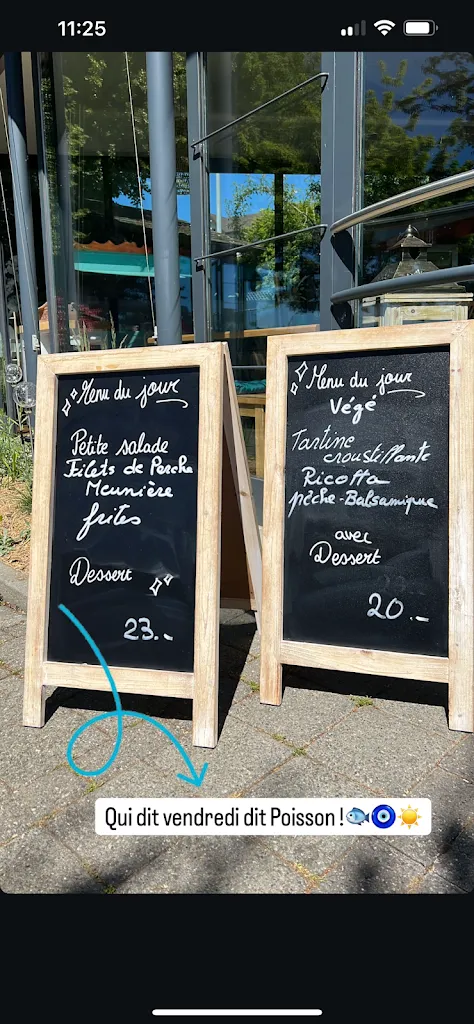 11:25
Menu du jour
Petite salade
Filets de Perche
Meunière
frites
Dessert
23.-
Menu du jour
Végé
Tartine
croustillante
Ricotta
pêche-Balsamique
avec
Dessert
20.-
Qui dit vendredi dit Poisson !🐟🧿☀️